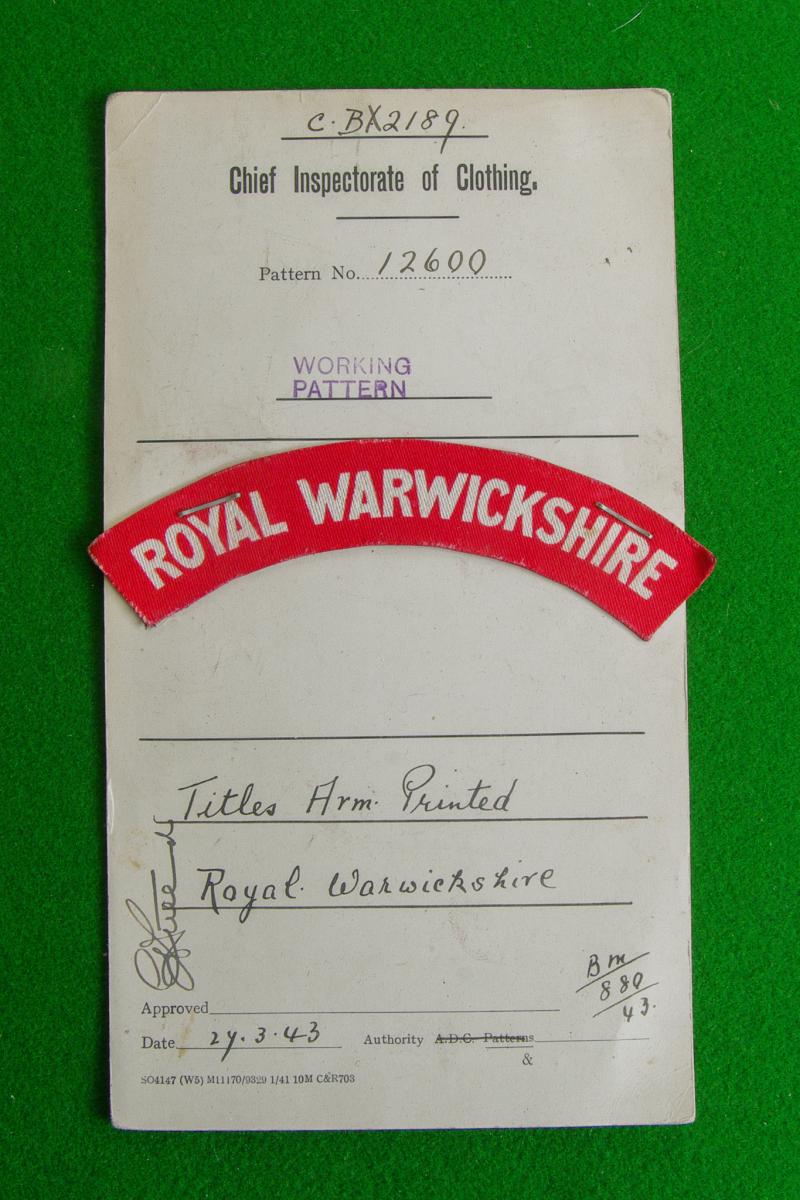 C.BX2189.
Chief Inspectorate of Clothing.
Pattern No. 12600
WORKING
PATTERN
ROYAL WARWICKSHIRE
Titles Arm. Printed
Royal. Warwickshire
BM
880
43.
Approved
Date 27.3.43 Authority A.D.C. Patterns
&
SO4147 (W5) M11170/9329 1/41 10M C&R703